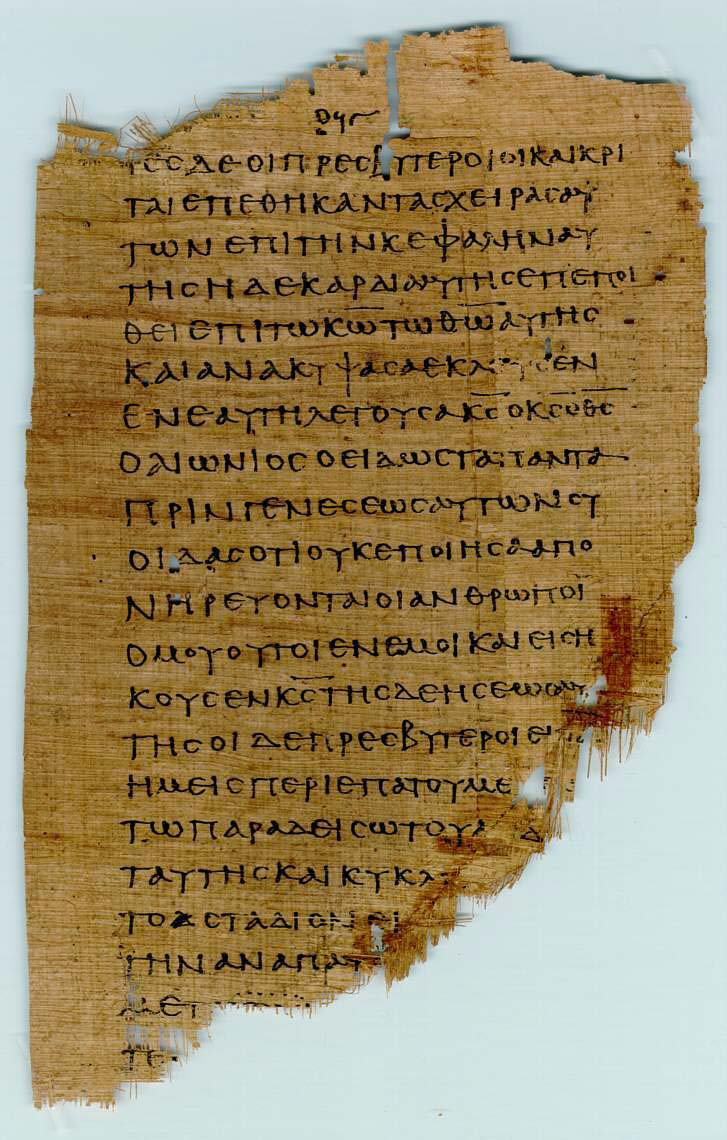 ϹΔΕΟΙΠΡΕϹΒΥΤΕΡΟΙΟΙΚΑΙΚΡΙ
ΤΑΙΕΠΕΘΗΚΑΝΤΑϹΧΕΙΡΑϹΑΥ
ΤΩΝΕΠΙΤΗΝΚΕΦΑΛΗΝΑΥ
ΤΗϹΗΔΕΚΑΡΔΙΑΑΥΤΗϹΕΠΕΠΟΙ
ΘΕΙΕΠΙΤΩΚ̅Ω̅ΤΩΘ̅Ω̅ΑΥΤΗϹ
ΚΑΙΑΝΑΚΥΨΑϹΑΕΚΛΑΥϹΕΝ
ΕΝΕΑΥΤΗΛΕΓΟΥϹΑΚ̅Ϲ̅ΟΚ̅Ϲ̅ΟΘ̅Ϲ̅
ΟΑΙΩΝΙΟϹΟΕΙΔΩϹΤΑΠΑΝΤΑ
ΠΡΙΝΓΕΝΕϹΕΩϹΑΥΤΩΝϹΥ
ΟΙΔΑϹΟΤΙΟΥΚΕΠΟΙΗϹΑΑΠΟ
ΝΗΡΕΥΟΝΤΑΙΟΙΑΝΘΡΩΠΟΙ
ΟΜΟΥΟΥΤΟΙΕΝΕΜΟΙΚΑΙΕΙϹΗ
ΚΟΥϹΕΝΚ̅Ϲ̅ΤΗϹΔΕΗϹΕΩϹΑΥ
ΤΗϹΟΙΔΕΠΡΕϹΒΥΤΕΡΟΙΕΙ
ΗΜΕΙϹΠΕΡΙΕΠΑΤΟΥΜΕ
ΤΩΠΑΡΑΔΕΙϹΩΤΟΥΑ Δ
ΤΑΥΤΗϹΚΑΙΚΥΚΛ
ΤΟΑϹΤΑΔΙΟΝΕΙ
ΤΗΝΑΝΑΠΑΥ
ΜΕΤ